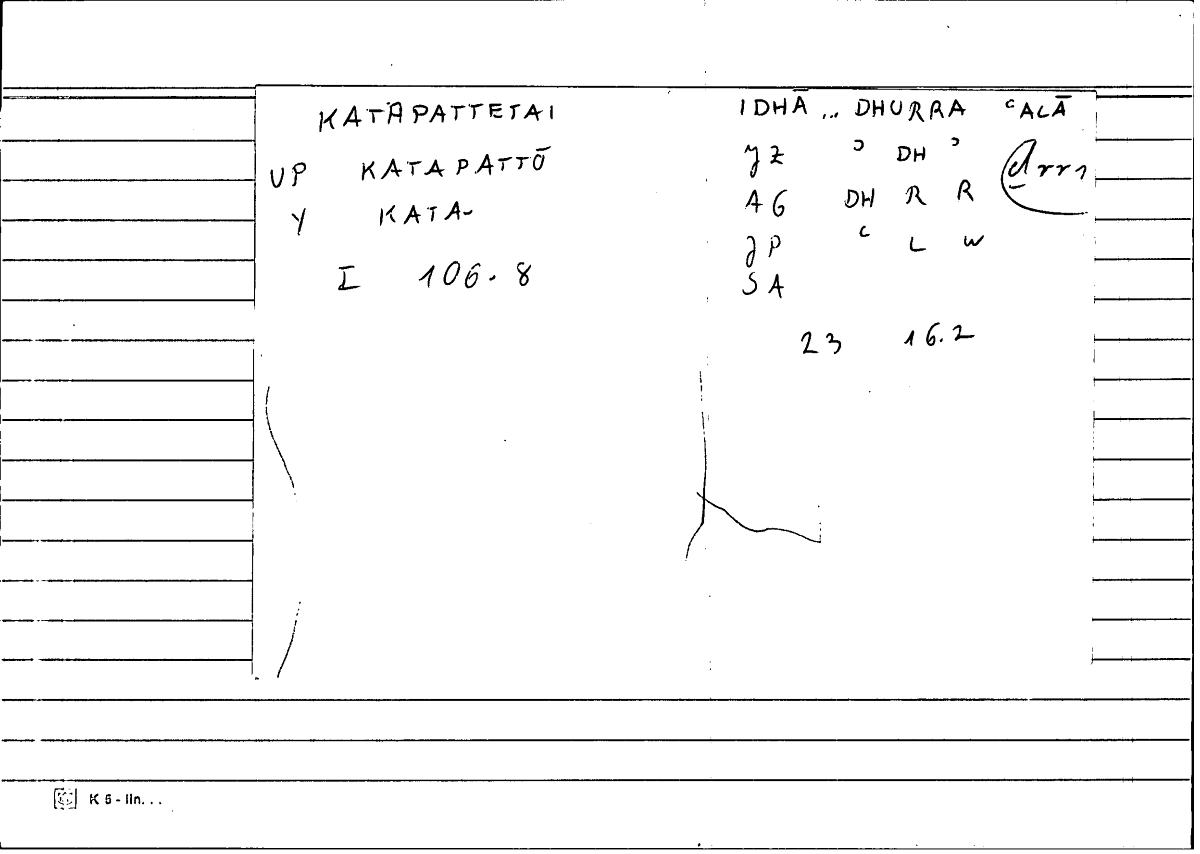 KATAPATTETAI
UP KATAPATTŌ
Y KATA-
I 106.8
IDHĀ ... DHURRA ʿALĀ
JZ ʾ DH ʾ
AG DH R R
JP ʿ L W
SA
drr1
23 16.2
K 5 - lin...